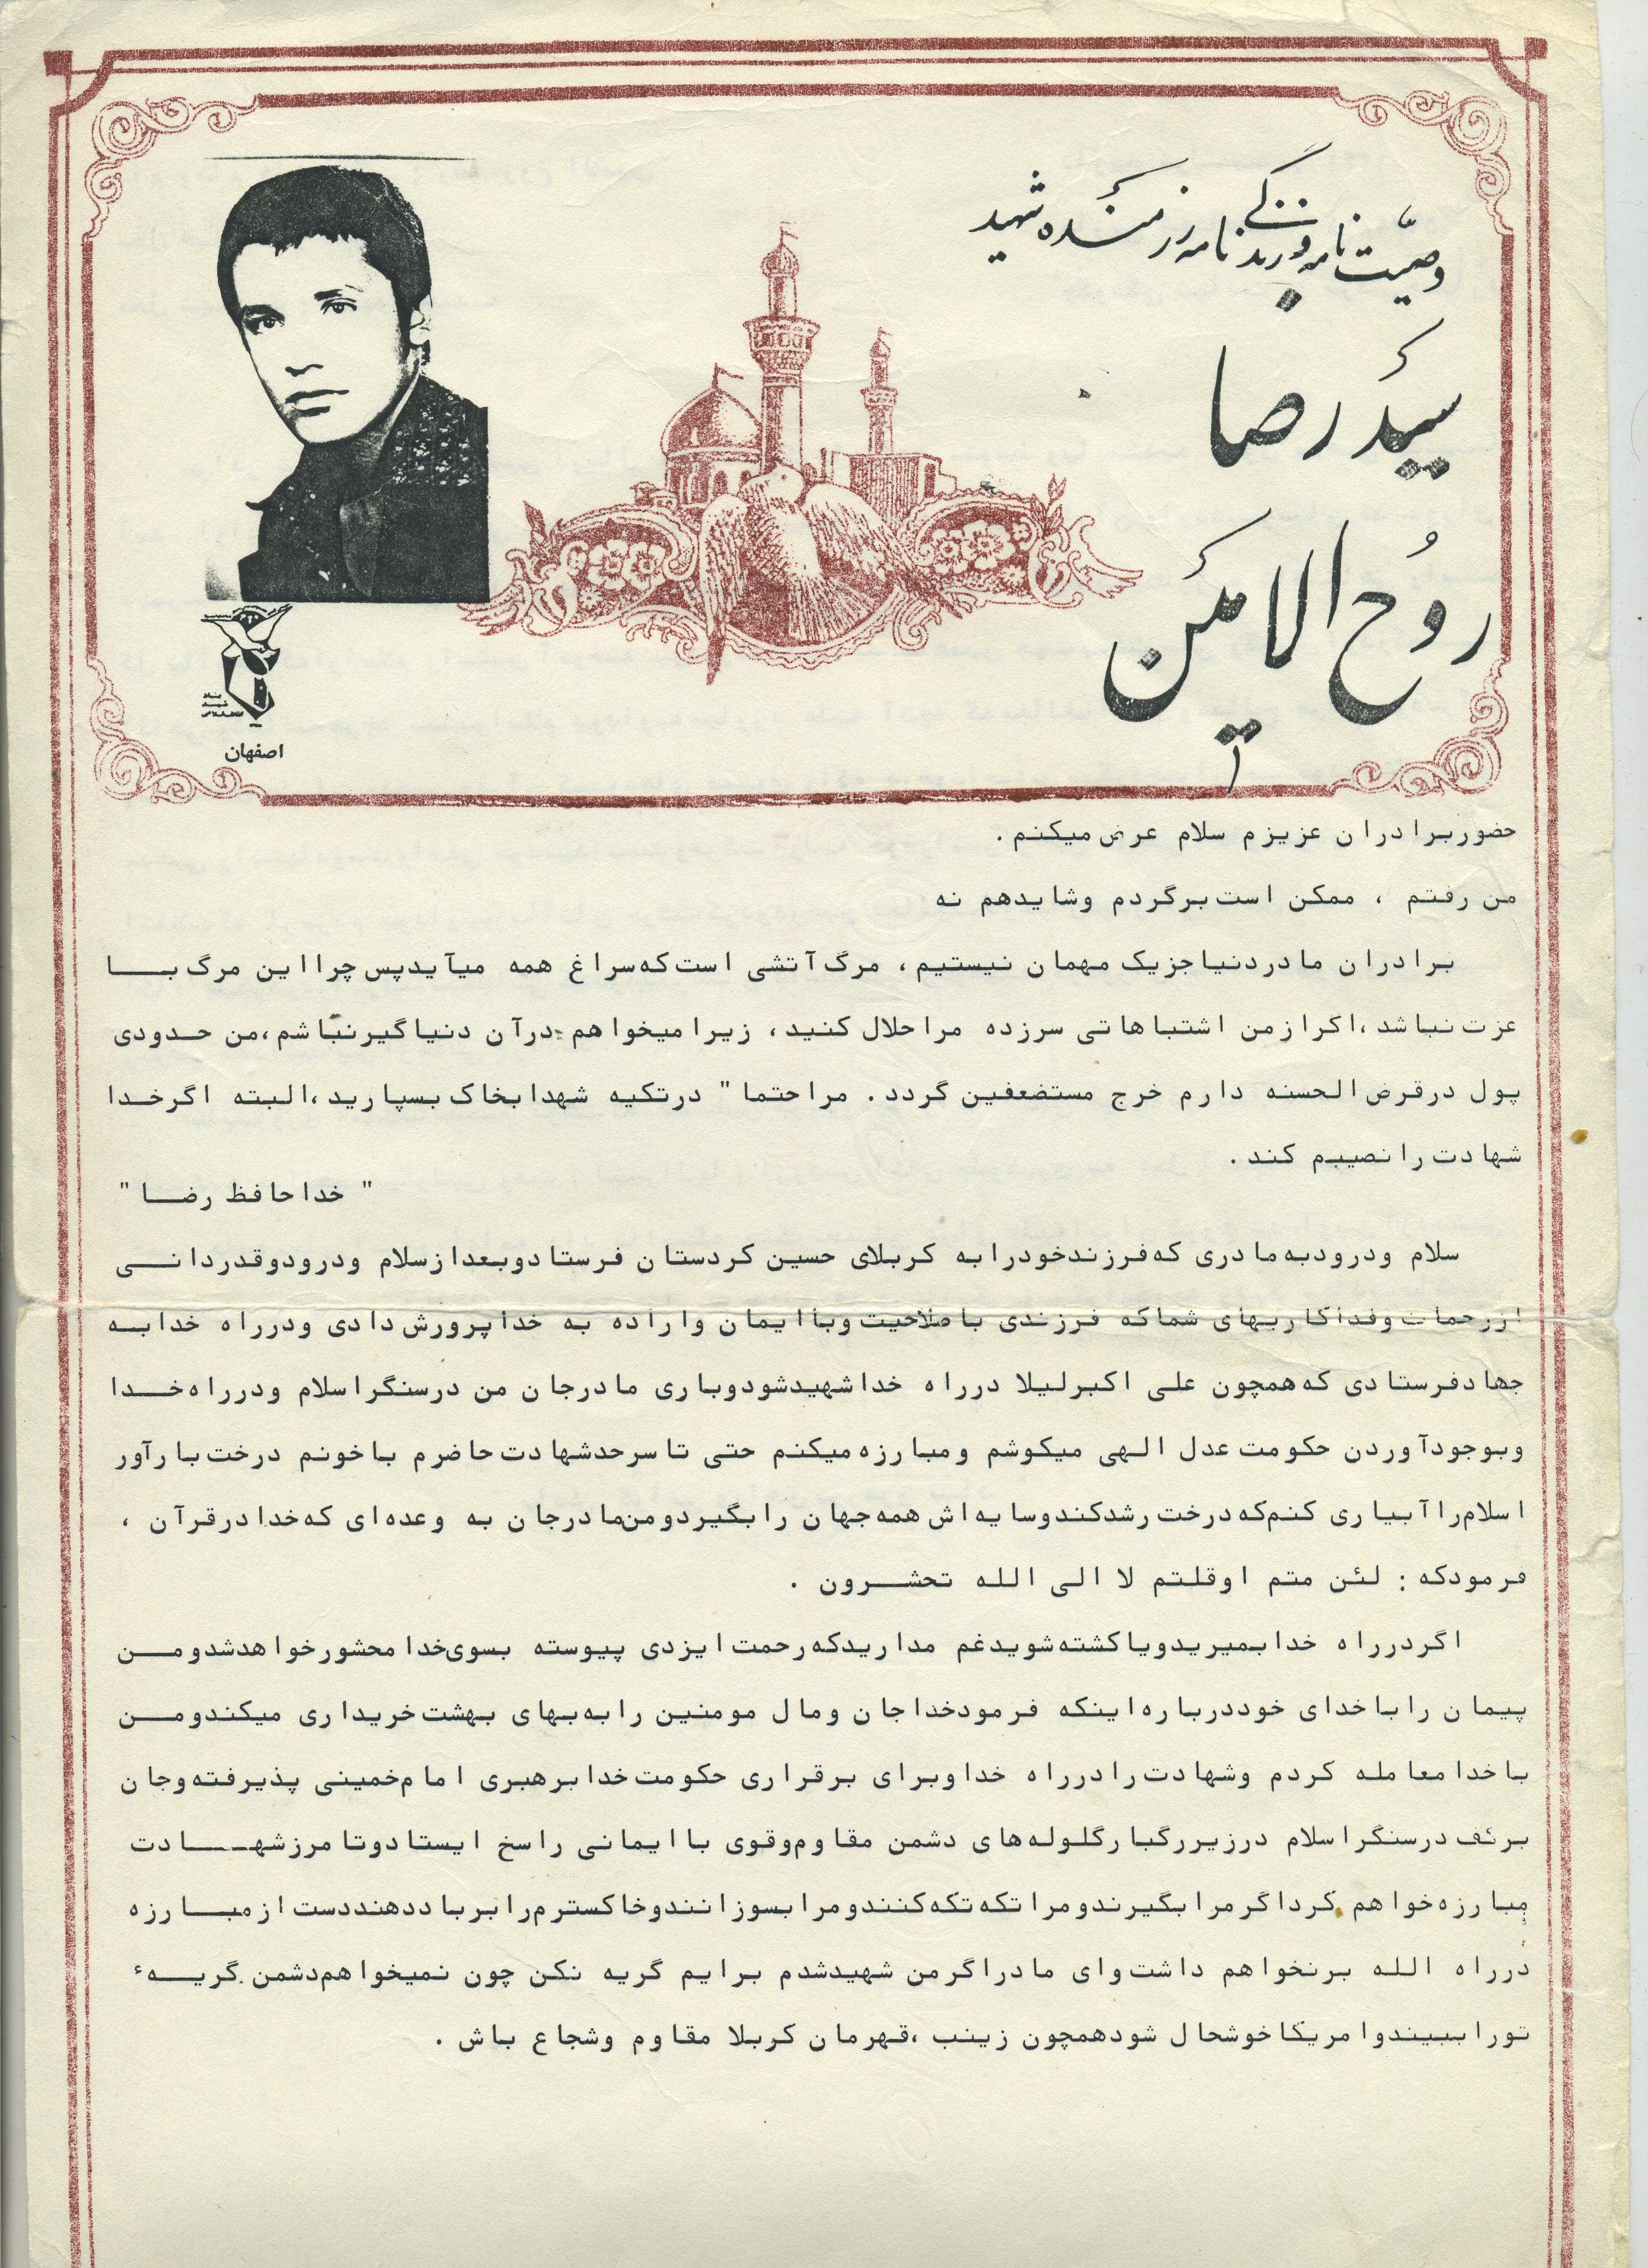 وصیّت نامه و زندگی نامه رزمنده شهید
سیّد رضا
روح الامین
۱
اصفهان
حضور برادران عزیزم سلام عرض میکنم .
من رفتم ، ممکن است برگردم وشاید هم نه
برادران ما در دنیا جز یک مهمان نیستیم ، مرگ آتشی است که سراغ همه میآید پس چرا این مرگ با
عزت نباشد ، اگر از من اشتباهاتی سرزده مرا حلال کنید ، زیرا میخواهم در آن دنیا گیر نباشم ، من حدودی
پول در قرض الحسنه دارم خرج مستضعفین گردد . مرا حتما " در تکیه شهدا بخاک بسپارید ، البته اگر خدا
شهادت را نصیبم کند .
" خدا حافظ رضا "
سلام و درود به مادری که فرزند خود را به کربلای حسین کردستان فرستاد و بعد از سلام و درود و قدردانی
از زحمات و فداکاریهای شما که فرزندی با صلاحیت و با ایمان و اراده به خدا پرورش دادی و در راه خدا به
جهاد فرستادی که همچون علی اکبر لیلا در راه خدا شهید شود و باری مادر جان من در سنگر اسلام و در راه خدا
و بوجود آوردن حکومت عدل الهی میکوشم و مبارزه میکنم حتی تا سر حد شهادت حاضرم با خونم درخت بارآور
اسلام را آبیاری کنم که درخت رشد کند و سایه اش همه جهان را بگیرد و من مادر جان به وعده ای که خدا در قرآن ،
فرمود که : لئن متم اوقلتم لا الی الله تحشرون .
اگر در راه خدا بمیرید و یا کشته شوید غم مدارید که رحمت ایزدی پیوسته بسوی خدا محشور خواهد شد و من
پیمان را با خدای خود درباره اینکه فرمود خدا جان و مال مومنین را به بهای بهشت خریداری میکند و من
با خدا معامله کردم و شهادت را در راه خدا و برای برقراری حکومت خدا برهبری امام خمینی پذیرفته و جان
بر کف در سنگر اسلام در زیر رگبار گلوله های دشمن مقاوم و قوی با ایمانی راسخ ایستاد و تا مرز شهادت
مبارزه خواهم کرد اگر مرا بگیرند و مرا تکه تکه کنند و مرا بسوزانند و خاکسترم را بر باد دهند دست از مبارزه
در راه الله بر نخواهم داشت و ای مادر اگر من شهید شدم برایم گریه نکن چون نمیخواهم دشمن گریهء
تو را ببیند و امریکا خوشحال شود همچون زینب ، قهرمان کربلا مقاوم و شجاع باش .